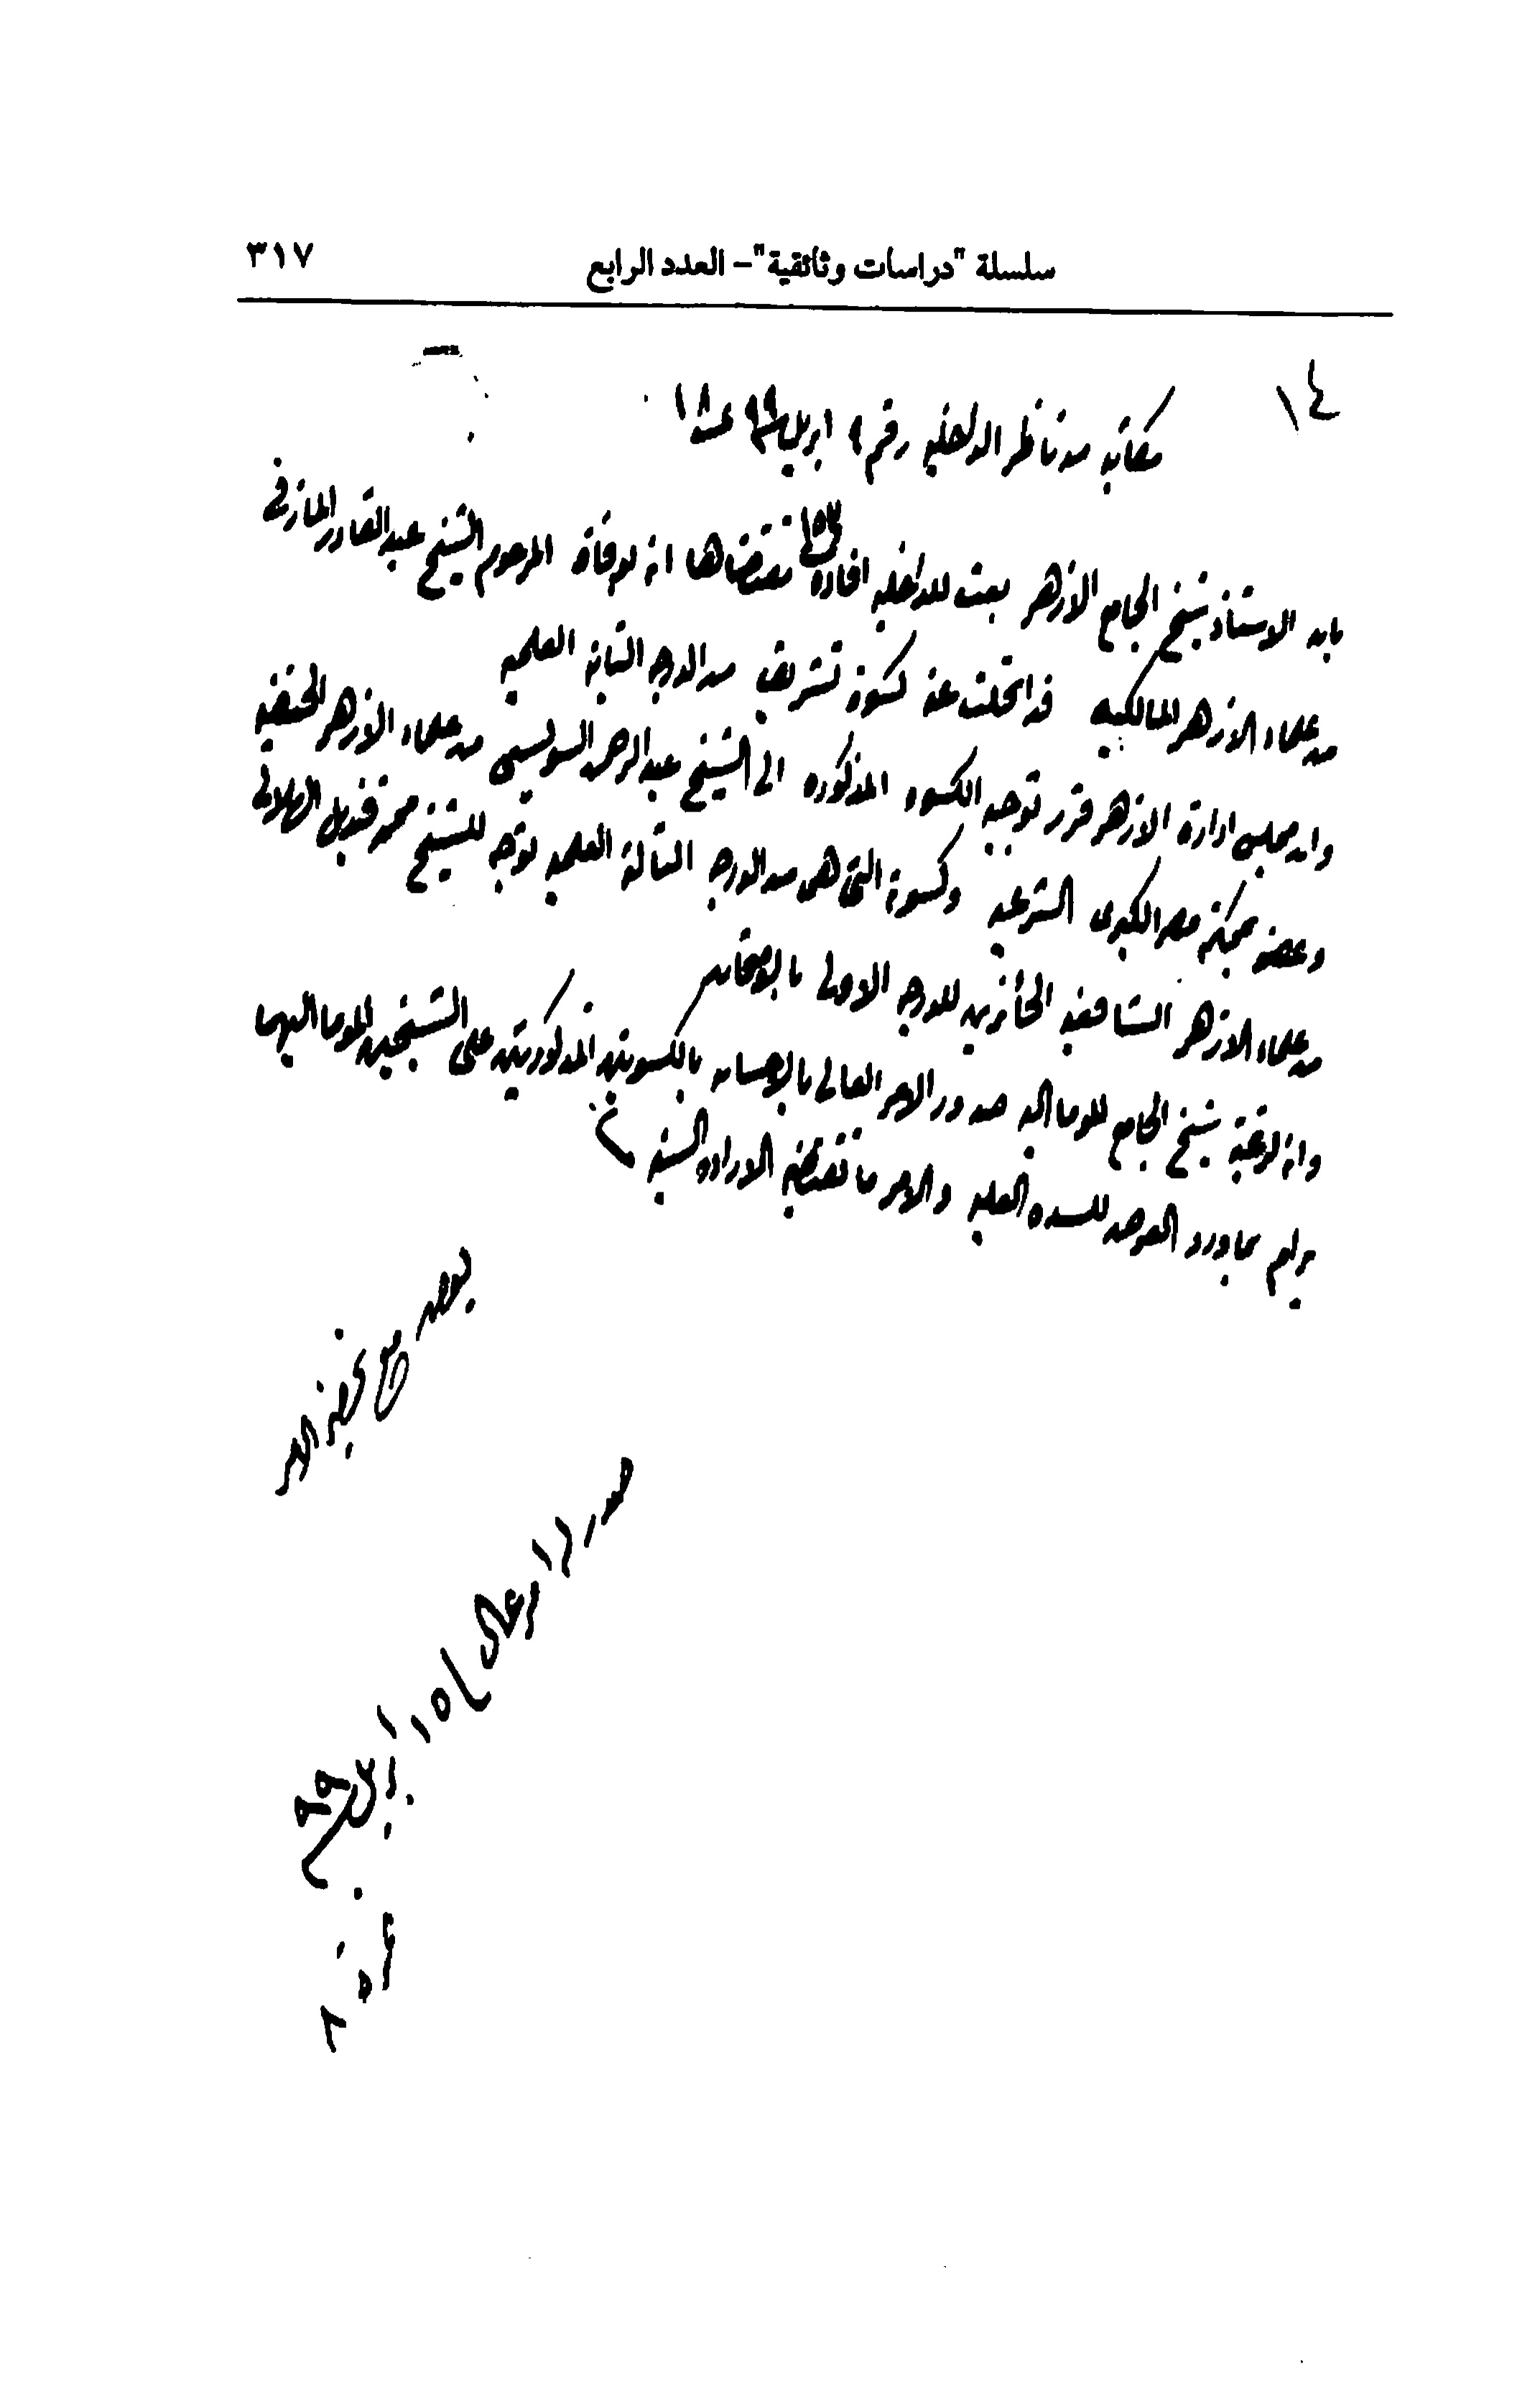 سلسلة "دراسات وثائقية" – العدد الرابع ٣١٧
١٤
مكاتبه من ناظر الداخليه رقم ٩ ابريل سنة ٩٩ ١٨
بان الاستاذ شيخ الجامع الازهر بعث للداخليه افادة مقتضاها انه لوفاة المرحوم الشيخ عبد القادر المازنى
من علماء الازهر المالكيه قد انحلت عنه كسوة تشريف من الدرجه الثانيه العلميه
وان مجلس ادارة الازهر قرر توجيه الكسوه المذكوره الى الشيخ عبد الرحمن السويسى من علماء الازهر الحنفيه
وعضو محكمة مصر الكبرى الشرعيه وكسوة التى هى من الدرجه الثالثة العلميه توجه للشيخ محمد قنديل الهلالى
من علماء الازهر الشافعيه الحائزين للدرجه الاولى بالامتحان
وانه لرغبة شيخ الجامع الموما اليه صدور الامر العالى بالاحسان بالكسوتين المذكورتين على الشيخين الموما اليهما
يرام بما ورد العرض للسده العليه والامر ما تقتضيه الاراده السنيه
صدر امر عالى
١٥ ابريل ٩٩